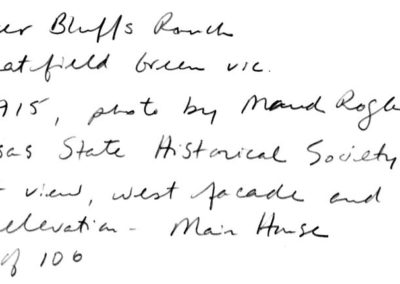 er Bluffs Ranch
atfield Green vic.
915, photo by Maud Rogle
sas State Historical Society
view, west facade and
elevation - Main House
of 106